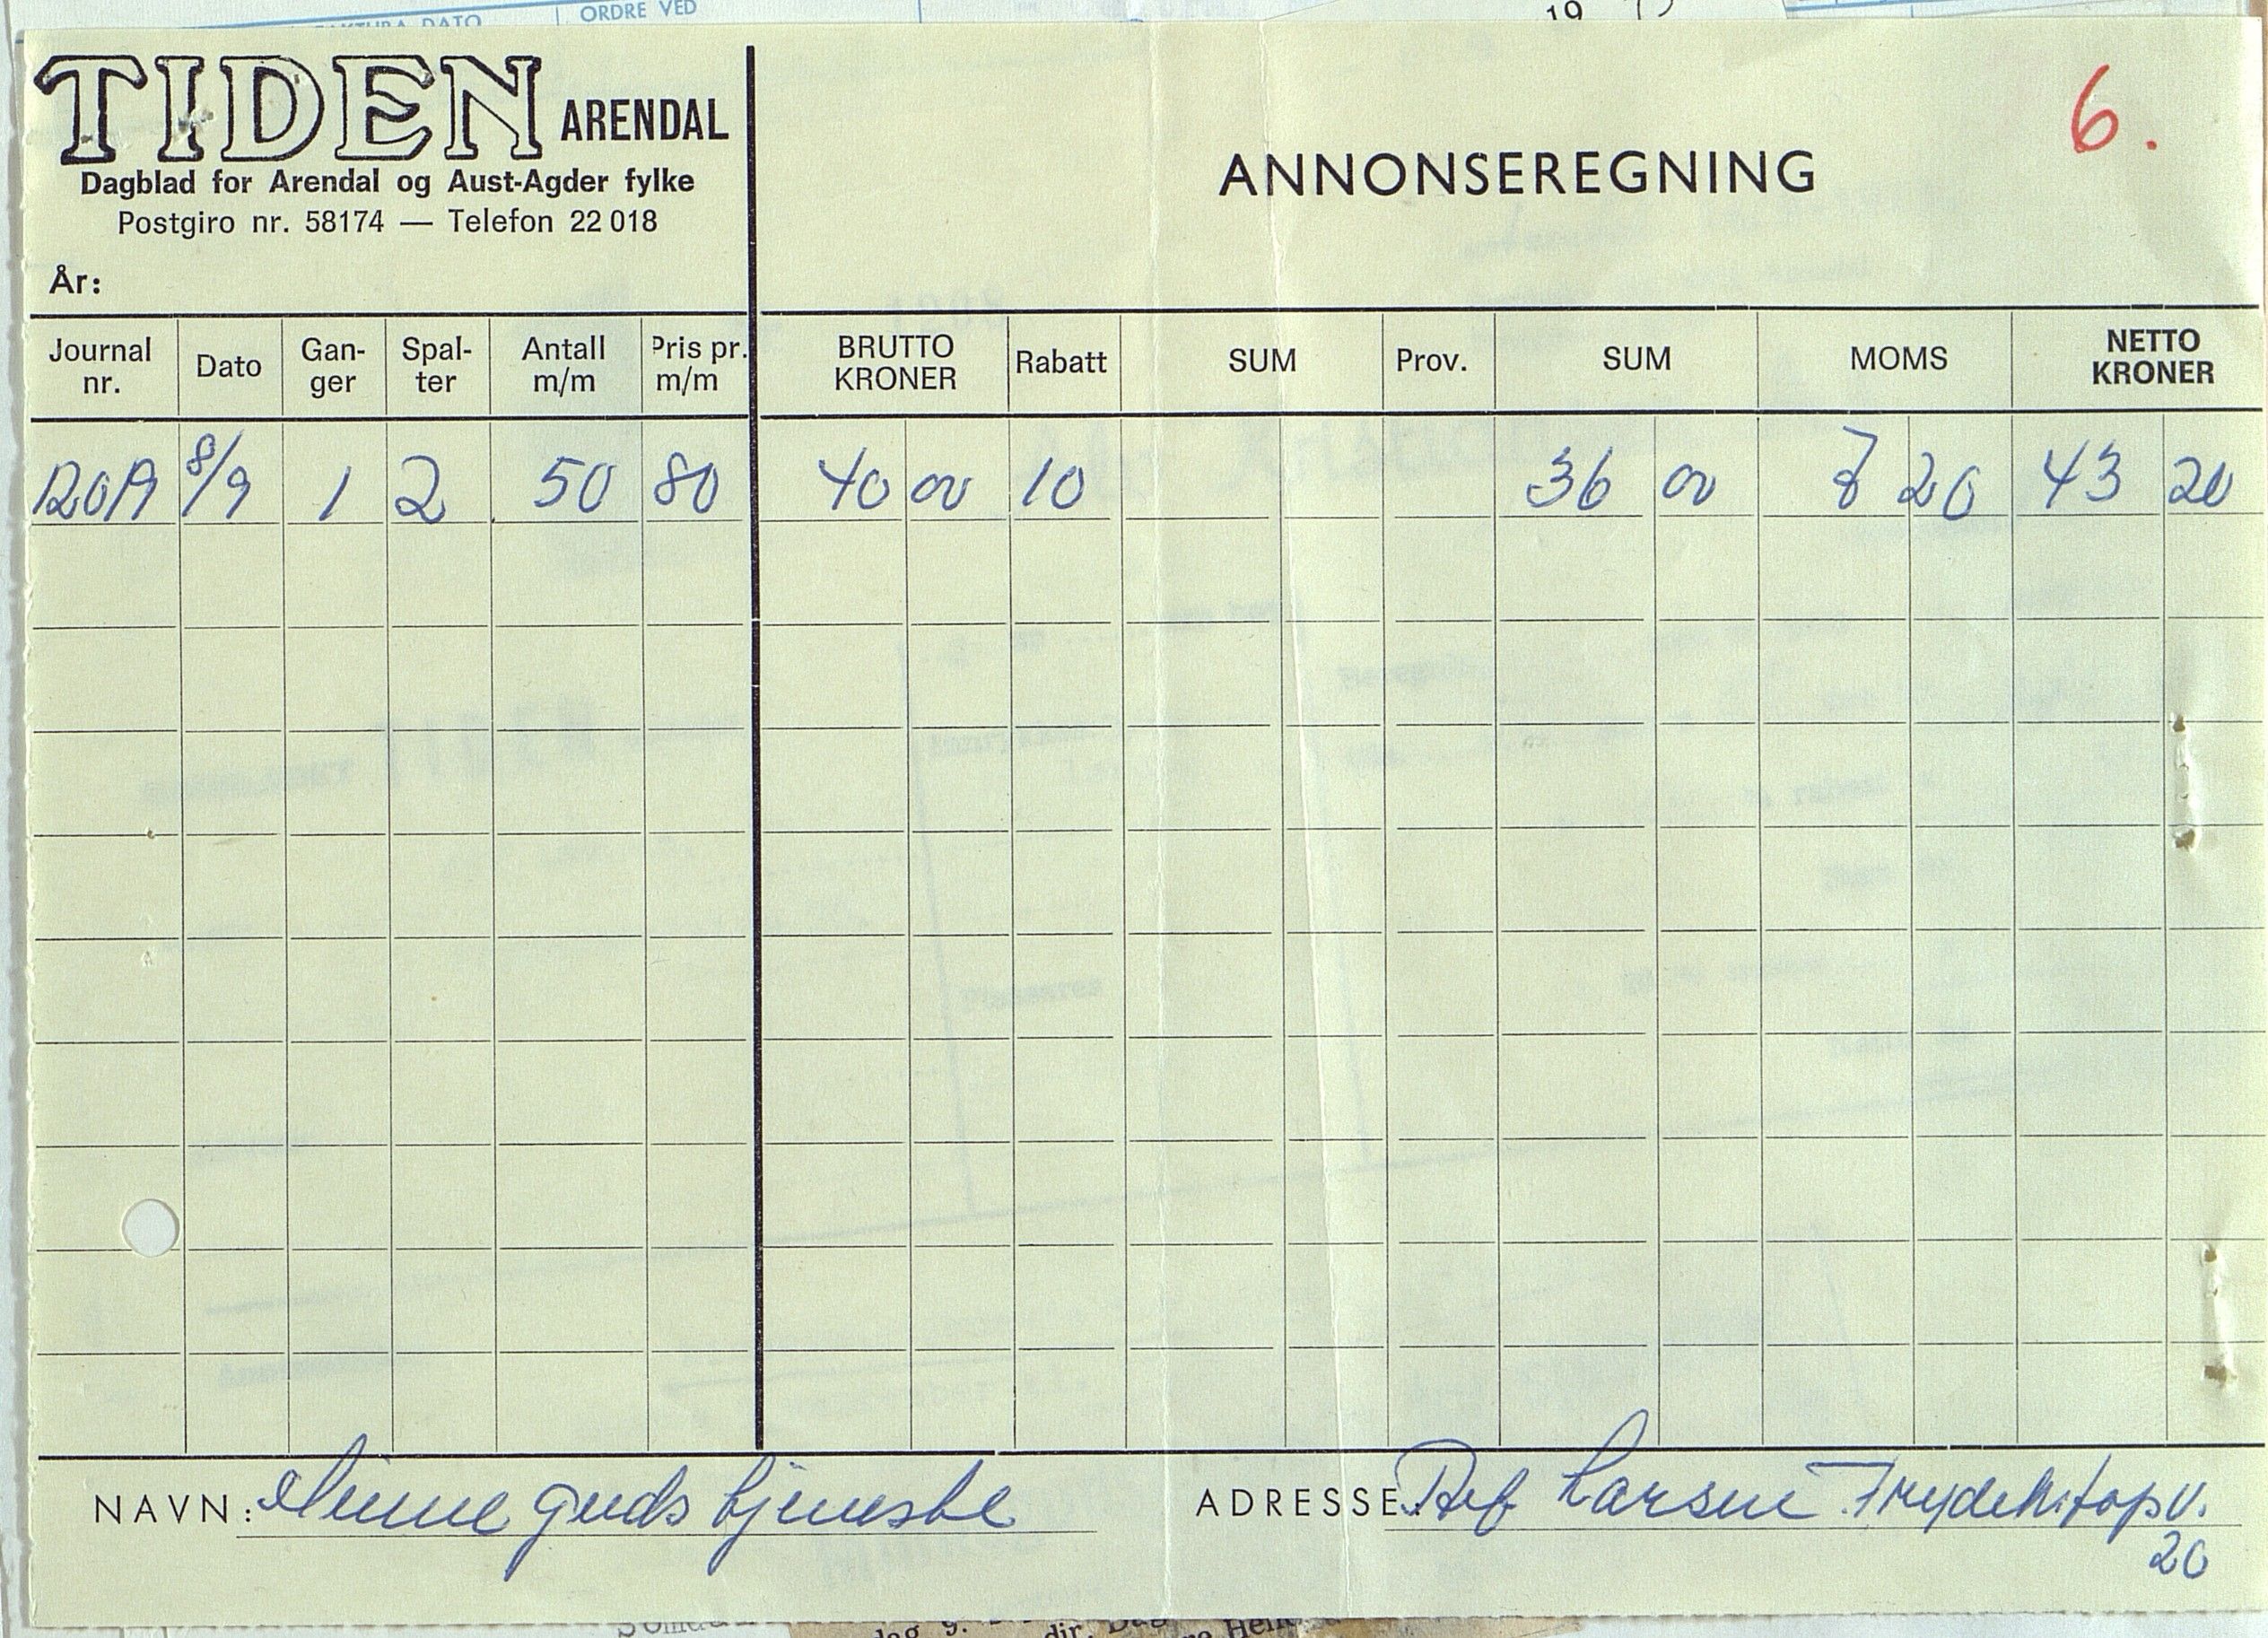 ORDRE VED
19
TIDEN ARENDAL
Dagblad for Arendal og Aust-Agder fylke
Postgiro nr. 58174 — Telefon 22 018
År:
ANNONSEREGNING
6.
Journal nr. Dato Gan- ger Spal- ter Antall m/m Pris pr. m/m BRUTTO KRONER Rabatt SUM Prov. SUM MOMS NETTO KRONER
8/9 1 2 50 80 40 00 10 36 00 7 20 43 20
NAVN: gudstjeneste
ADRESSE: Larsen
20